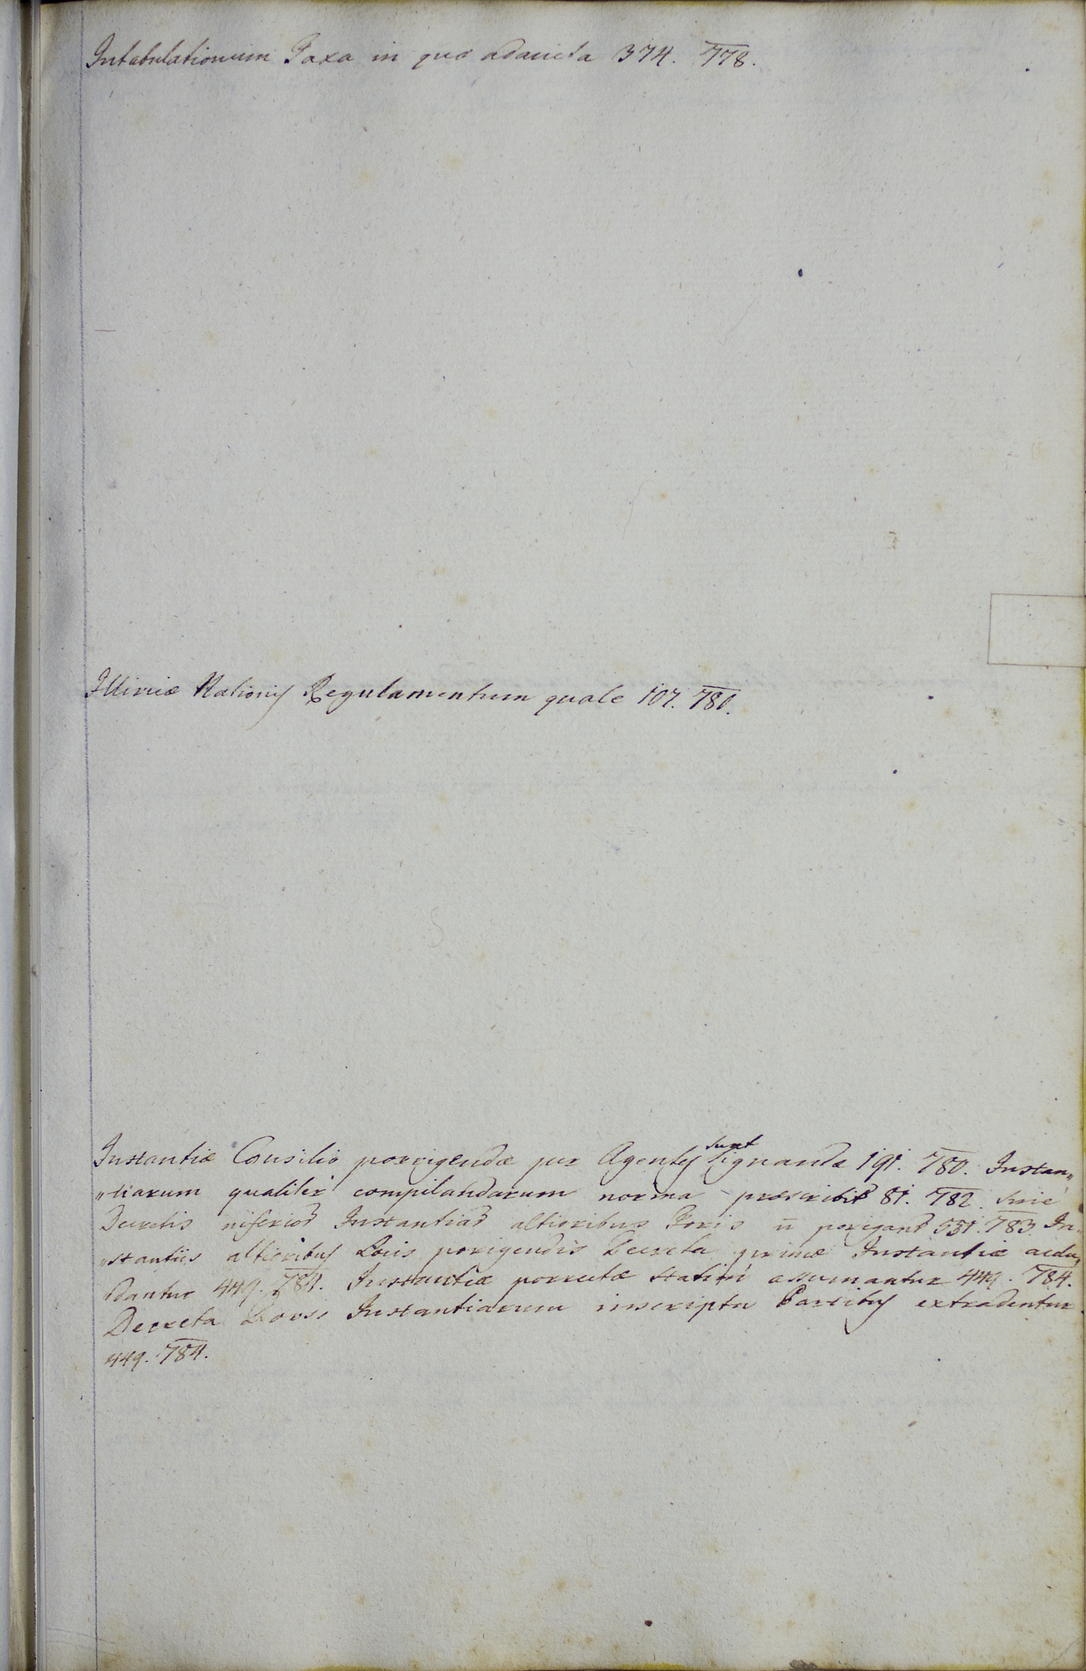 Intabulationum Taxa in quo adaucta 374. 778.
Illiricæ Nationis Regulamentum quale 107. 780.
Instantiæ Consilio porrigendæ per Agentes sunt signandæ 191. 780. Instan„
„tiarum qualiter compilandarum norma præscribit 81. 782. sine
Decretis inferior Instantiar altioribus Foris ñ porrigant 551. 783. In„
„stantiis altioribus Locis porigendis Decreta primæ Instantiæ aclu„
dantur 449. 784. Instantiæ porrectæ statim assumantur 449. 784.
Decreta Dorso Instantiarum inscripta Partibus extradentur.
449. 784.